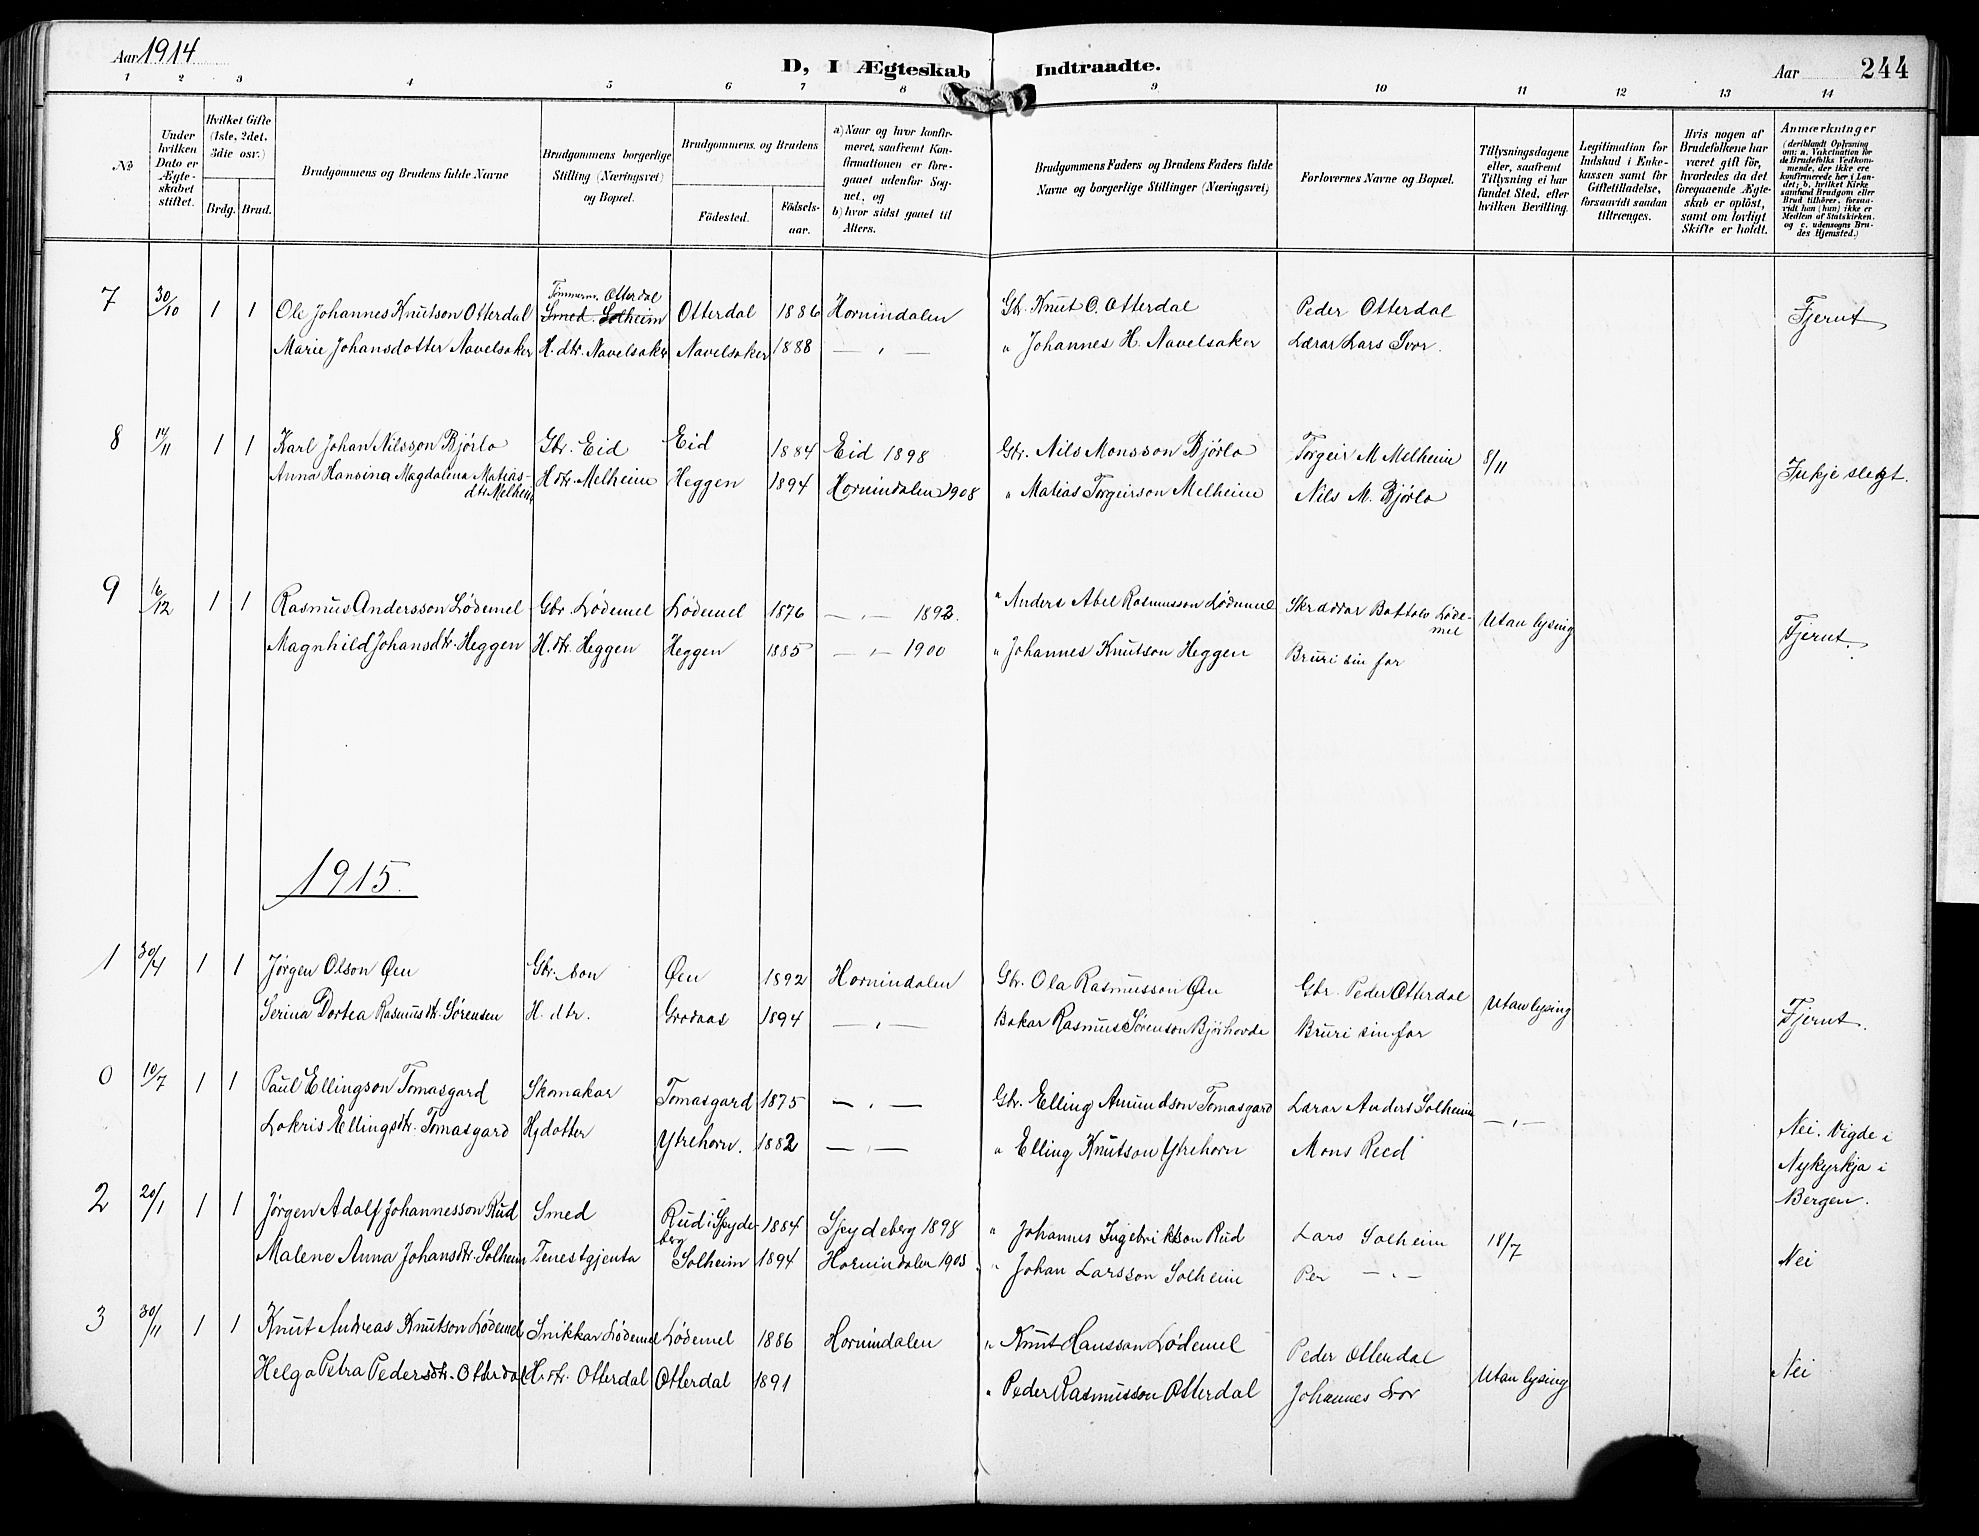 Aar 1914
D, I Ægteskab Indtraadte.
Aar
244
1 2 3 4 5 6 7 8 9 10 11 12 13 14
No
Under hvilken Dato er Ægteskabet stiftet.
Hvilket Gifte (1ste, 2det, 3die osv.)
Brdg. Brud.
Brudgommens og Brudens fulde Navne
Brudgommens borgerlige Stilling (Næringsvei) og Bopæl.
Brudgommens og Brudens
Födested.
Födselsaar.
a) Naar og hvor konfirmeret, saafremt Konfirmationen er foregaaet udenfor Sognet, og
b) hvor sidst gaaet til Alters.
Brudgommens Faders og Brudens Faders fulde Navne og borgerlige Stillinger (Næringsvei)
Forlovernes Navne og Bopæl.
Tillysningsdagene eller, saafremt Tillysning ei har fundet Sted, efter hvilken Bevilling.
Legitimation for Indskud i Enkekassen samt for Giftetilladelse, forsaavidt saadan tiltrænges.
Hvis nogen af Brudefolkene har været gift för, hvorledes da det foregaaende Ægteskab er oplöst, samt om lovligt Skifte er holdt.
Anmærkninger (deriblandt Oplysning om: a. Vakcination for de Brudefolks Vedkommende, der ikke ere konfirmerede her i Landet; b, hvilket Kirkesamfund Brudgom eller Brud tilhörer, forsaavidt han (hun) ikke er Medlem af Statskirken, og c. udensogns Brudes Hjemsted.)
7 30/10 1 1 Ole Johannes Knutson Otterdal Tömmerm. Otterdal Smed Solheim Otterdal 1886 Hornindalen Gbr. Knut O. Otterdal Peder Otterdal Fjernt
Marie Johansdotter Navelsaker H. dtr. Navelsaker Navelsaker 1888 — " — " Johannes H. Navelsaker Lærar Lars Svor.
8 14/11 1 1 Karl Johan Nilsson Bjørlo Gbr. Eid Eid 1884 Eid 1898 Gbr. Nils Monsson Bjørlo Torgeir M Melheim 8/11
Anna Hansina Magdalena Matiasdtr Melheim H dtr. Melheim Heggen 1894 Hornindalen 1908 " Matias Torgeirson Melheim Nils M. Bjørlo Inkje slegt.
9 16/12 1 1 Rasmus Andersson Lødemel Gbr. Lødemel Lødemel 1876 — " — 1892. " Anders Abel Rasmusson Lødemel Skraddar Bottolv Lødemel Utan lysing
Magnhild Johansdtr. Heggen H. dtr. Heggen Heggen 1885 — " — 1900 " Johannes Knutson Heggen Bruri sin far Fjernt.
1915.
1 30/4 1 1 Jørgen Olson Øen Gbr. son Øen 1892 Hornindalen Gbr. Ola Rasmusson Øen Gbr. Peder Otterdal Utan lysing
Serina Dortea Rasmusdtr. Sørensen H. dtr. Grodaas 1894 — " — Bakar Rasmus Sørenson Bjørhovde Bruri sin far Fjernt.
0 10/7 1 1 Paul Ellingson Tomasgard Skomakar Tomasgard 1875 — " — Gbr. Elling Amundson Tomasgard Lærar Anders Solheim — " —
Lokris Ellingsdtr. Tomasgard Hjdotter Ytrehorn. 1882 — " — " Elling Knutson Ytrehorn Mons Reed Nei. Vigde i Nykyrkja i Bergen.
2 20/1 1 1 Jørgen Adolf Johannesson Rud Smed Rud i Spydeberg 1884 Spydeberg 1898 " Johannes Ingebriktson Rud Lars Solheim 18/7
Malene Anna Johansdtr. Solheim Tenestgjenta Solheim 1894 Hornindalen 1908 " Johan Larsson Solheim Per — " — Nei
3 30/11 1 1 Knut Andreas Knutson Lødemel Snikkar Lødemel Lødemel 1886 Hornindalen " Knut Hansson Lødemel Peder Otterdal Utan lysing
Helga Petra Pedersdtr. Otterdal H. dtr. Otterdal Otterdal 1891 " Peder Rasmusson Otterdal Johannes Svor Nei